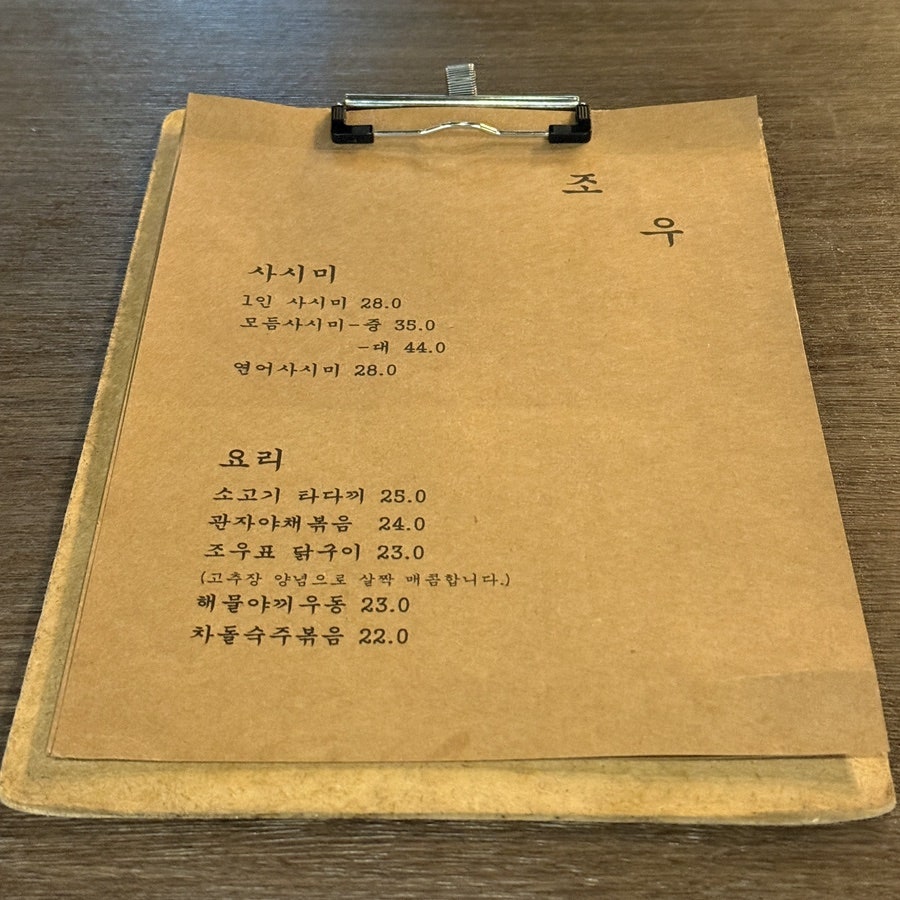 조
우
사시미
1인 사시미 28.0
모듬사시미-중 35.0
-대 44.0
연어사시미 28.0
요리
소고기 타다끼 25.0
관자야채볶음 24.0
조우표 닭구이 23.0
(고추장 양념으로 살짝 매콤합니다.)
해물야끼우동 23.0
차돌숙주볶음 22.0